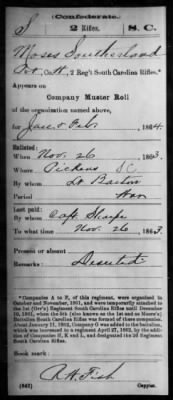 Confederate.
S 2 Rifles. S. C.
Moses Southerland
Pvt, Co. H, 2 Reg't South Carolina Rifles.*
Appears on
Company Muster Roll
of the organization named above,
for Jan & Feb, 1864.
Enlisted:
When Nov. 26, 1863.
Where Pickens SC
By whom Lt Barton
Period War
Last paid:
By whom Capt. Sharpe
To what time Nov. 26, 1863.
Present or absent
Remarks: Deserted
*Companies A to F, of this regiment, were organized in
October and November, 1861, and were temporarily attached to
the 1st (Orr's) Regiment South Carolina Rifles until December
10, 1861, when the 5th (also known as the 1st and as Moore's)
Battalion South Carolina Rifles was formed of these companies.
About January 11, 1862, Company G was added to the battalion,
which was increased to a regiment April 27, 1862, by the addi-
tion of Companies H, I and K, and designated the 2d Regiment
South Carolina Rifles.
Book mark:
R. H. Fish
(642) Copyist.